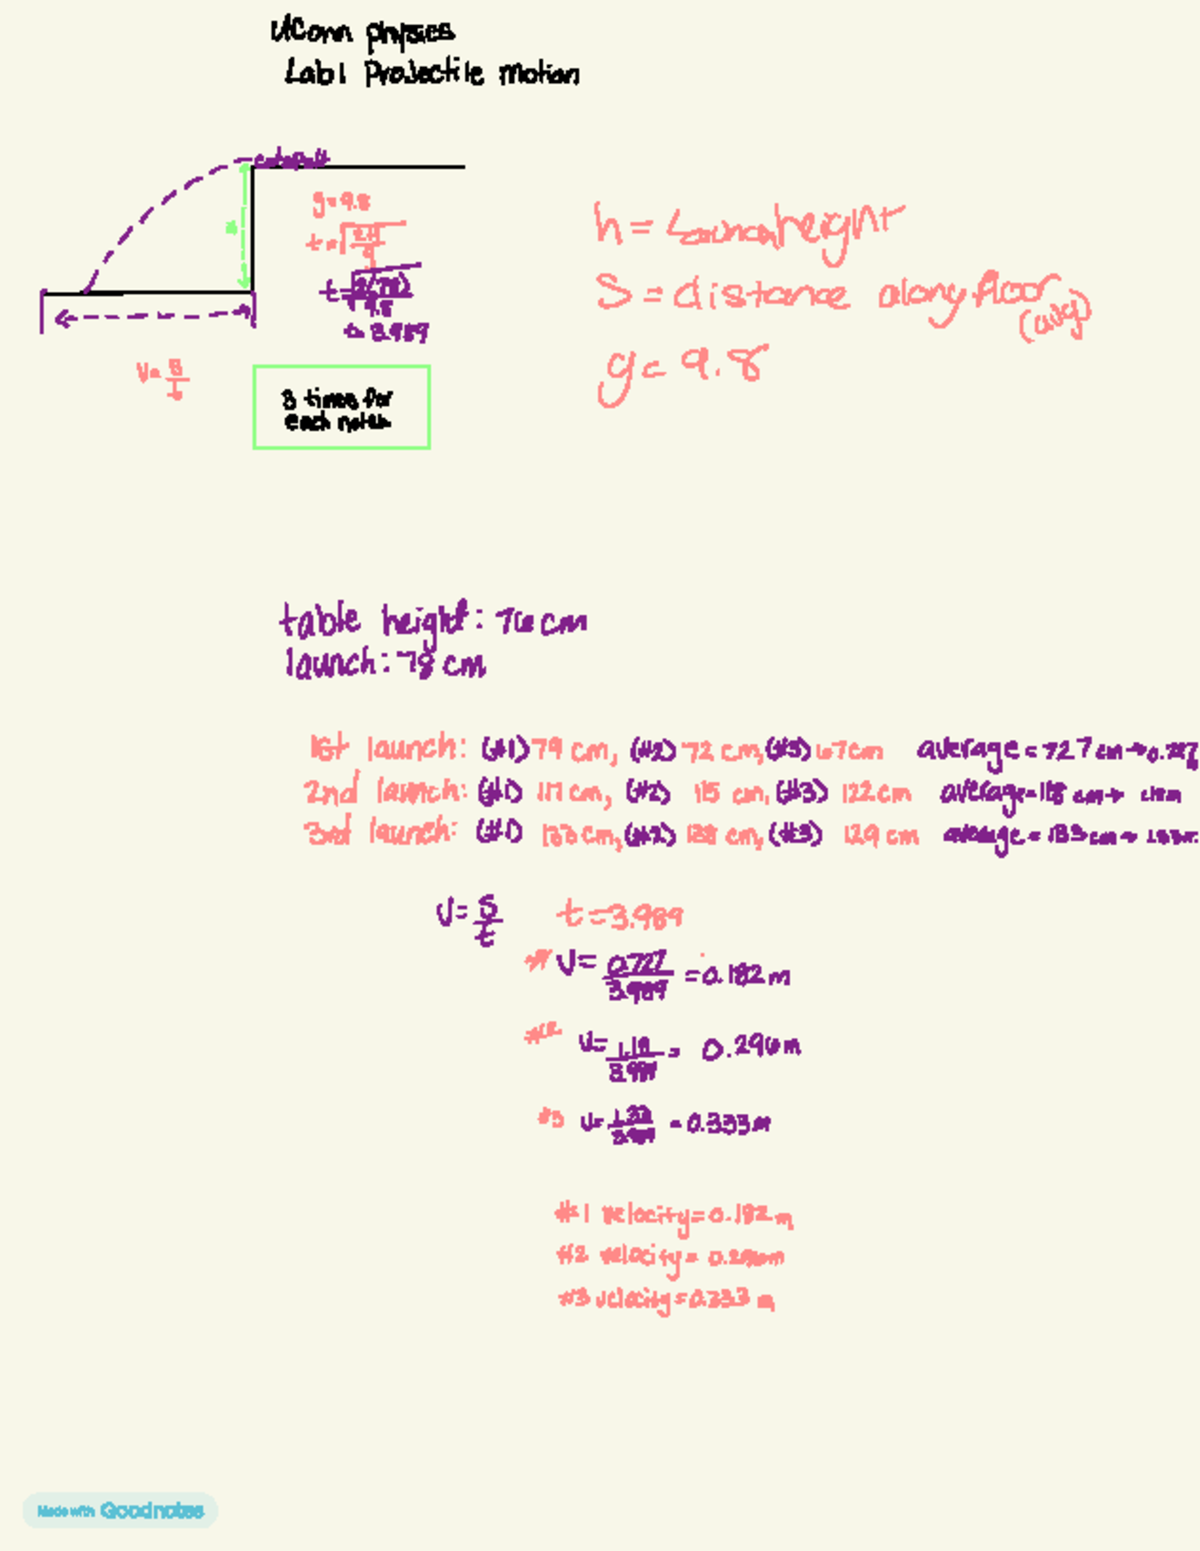 UConn physics
Lab 1 Projectile motion
catapult
g = 9.8
t = √2H/g
t = √2(78)/9.8
t = 3.989
h = Launch height
S = distance along floor
(avg)
g = 9.8
V = S/t
3 times for
each notch
table height: 76 cm
launch: 78 cm
1st launch: (#1) 79 cm, (#2) 72 cm, (#3) 67 cm average = 72.7 cm → 0.727
2nd launch: (#1) 117 cm, (#2) 115 cm, (#3) 122 cm average = 118 cm → 1.18m
3rd launch: (#1) 133 cm, (#2) 138 cm, (#3) 129 cm average = 133 cm → 1.33m
V = S/t t = 3.989
#1 V = 0.727/3.989 = 0.182 m
#2 V = 1.18/3.989 = 0.296 m
#3 V = 1.33/3.989 = 0.333 m
#1 velocity = 0.182 m
#2 velocity = 0.296 m
#3 velocity = 0.333 m
Made with Goodnotes